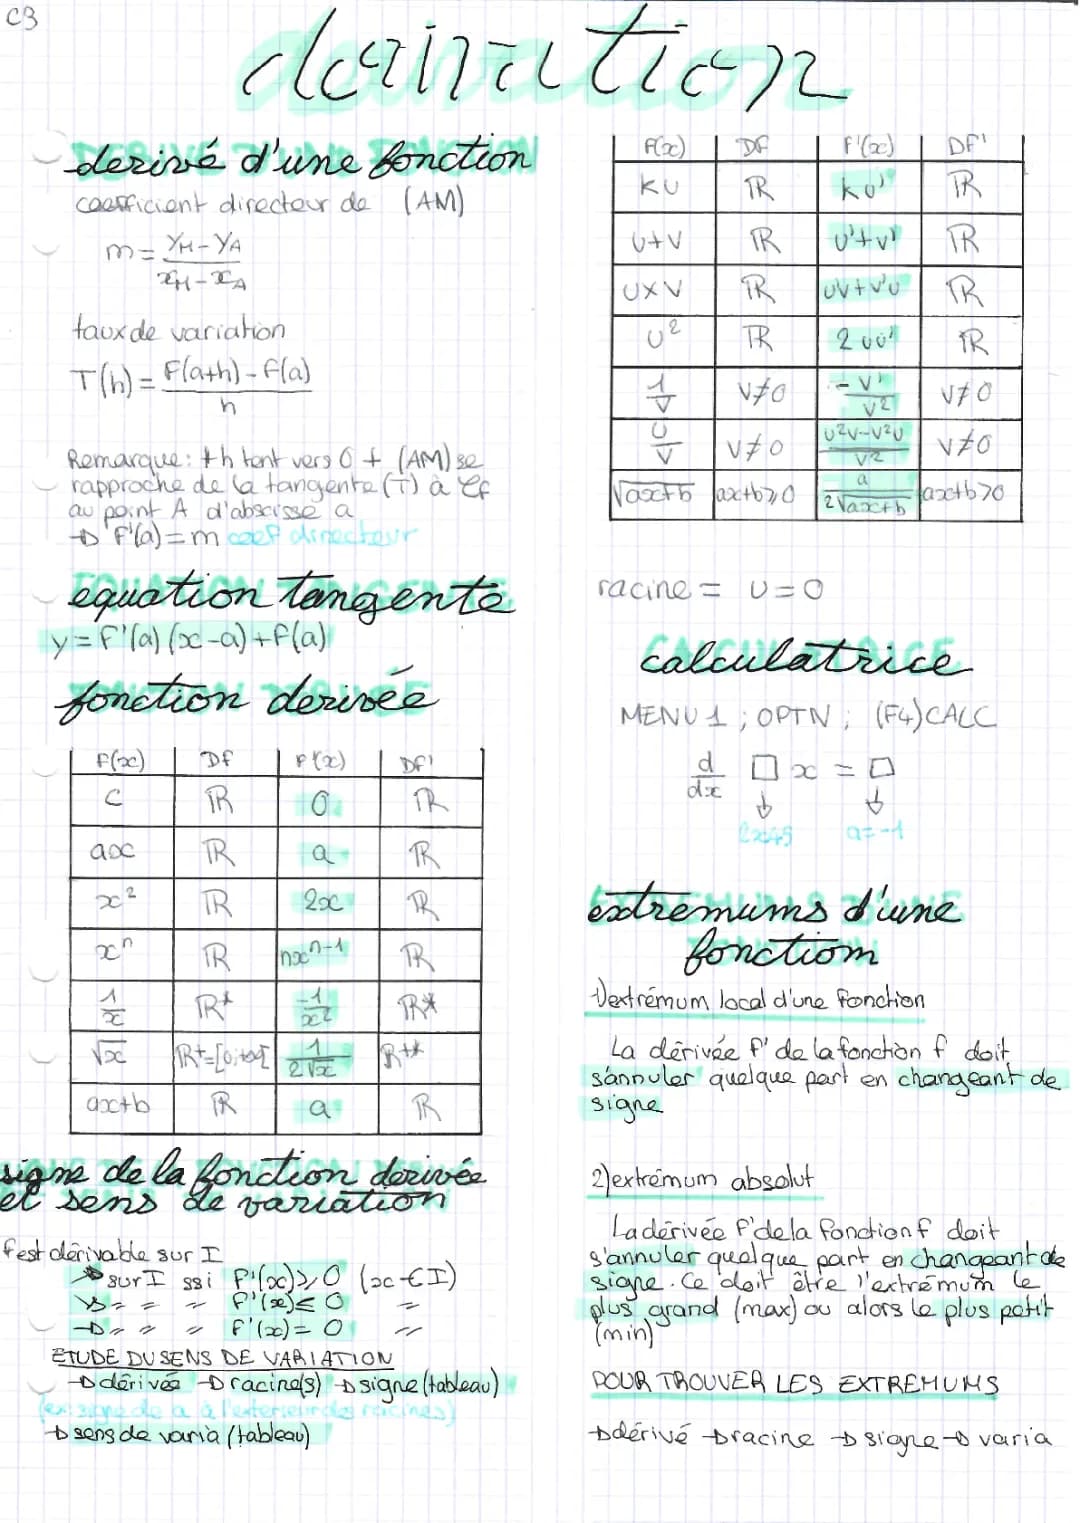 C3
derivation
derivé d'une fonction
coefficient directeur de (AM)
m = yM - yA / xM - xA
taux de variation
T(h) = F(a+h) - f(a) / h
Remarque: + h tent vers 0 + (AM) se
rapproche de la tangente (T) à Cf
au point A d'abscisse a
→ F'(a) = m coef directeur
EQUATION TANGENTE
equation tangente
y = F'(a) (x - a) + f(a)
fonction derivée
F(x) Df F'(x) Df'
C ℝ 0 ℝ
ax ℝ a ℝ
x² ℝ 2x ℝ
xⁿ ℝ nxⁿ⁻¹ ℝ
1/x ℝ* -1/x² ℝ*
√x ℝ+=[0;+∞[ 1/2√x ℝ+*
ax+b ℝ a ℝ
signe de la fonction derivée
et sens de variation
f est dérivable sur I
↗ sur I ssi F'(x) ≥ 0 (x ∈ I)
↘ " " " F'(x) ≤ 0 "
→ " " " F'(x) = 0 "
ETUDE DU SENS DE VARIATION
→ dérivée → racine(s) → signe (tableau)
(ex: signe de a à l'exterieur des racines)
→ sens de varia (tableau)
F(x) DF F'(x) DF'
KU ℝ KU' ℝ
U+V ℝ U'+V' ℝ
U×V ℝ UV+V'U ℝ
U² ℝ 2UU' ℝ
1/V V≠0 -V'/V² V≠0
U/V V≠0 U²V-V²U/V² V≠0
√ax+b ax+b≥0 a/2√ax+b ax+b>0
racine = U = 0
CALCULATRICE
calculatrice
MENU 1 ; OPTN ; (F4) CALC
d/dx □ x = □
↓ ↓
2x45 a=-1
extremums d'une
fonctiom
1) extrémum local d'une fonction
La dérivée f' de la fonction f doit
s'annuler quelque part en changeant de
signe
2) extrémum absolut
La dérivée F' de la fonction f doit
s'annuler quelque part en changeant de
signe. Ce doit être l'extrémum le
plus grand (max) ou alors le plus petit
(min)
POUR TROUVER LES EXTREMUMS
→ dérivé → racine → signe → varia